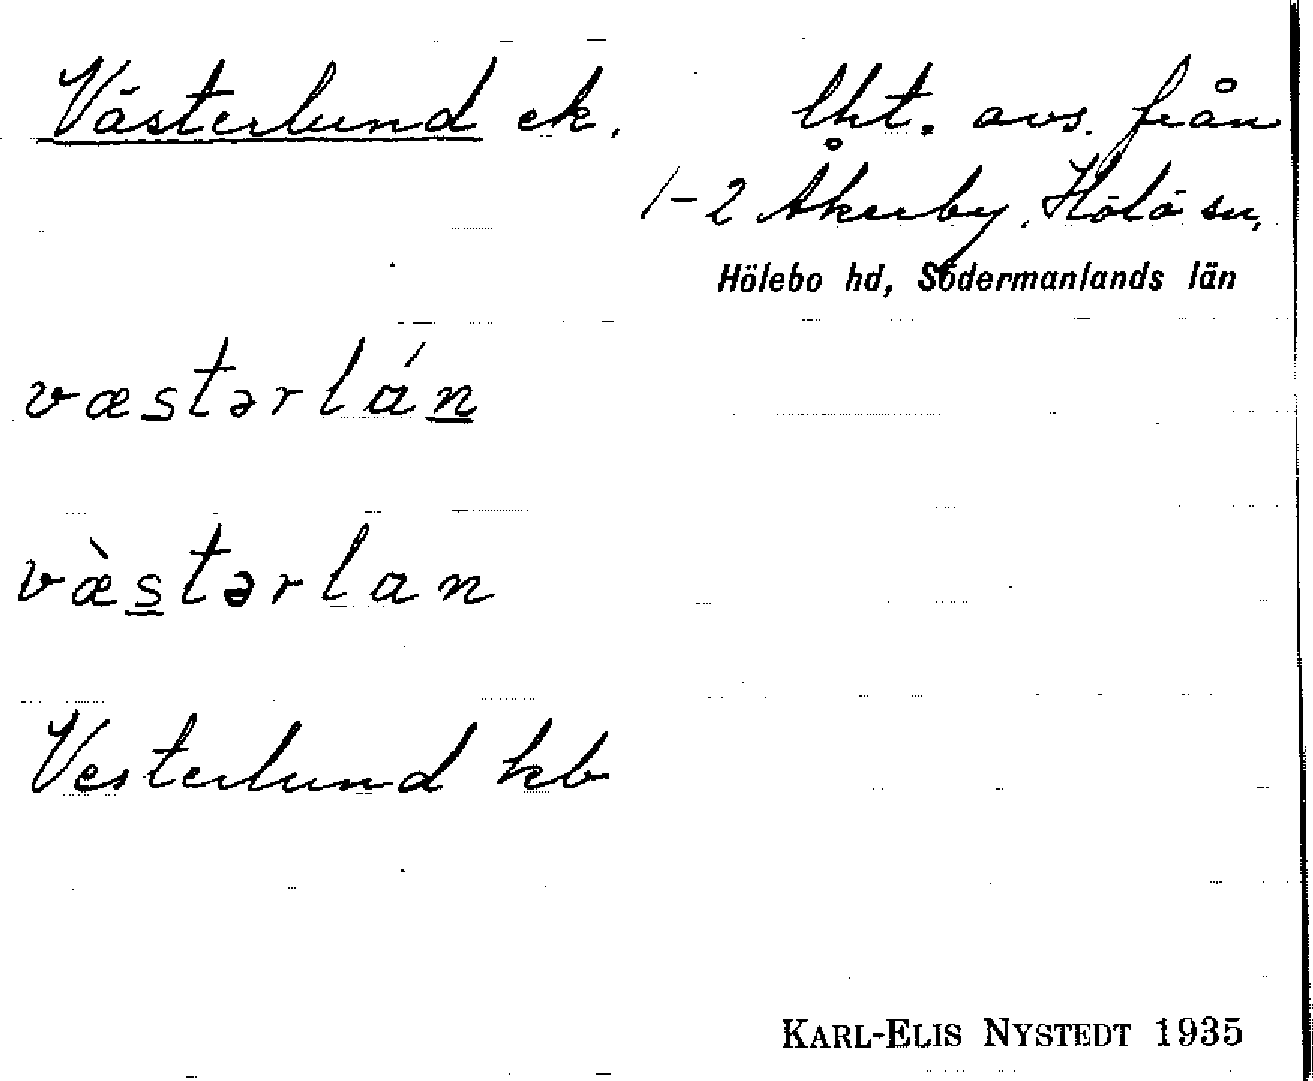 Västerlund ek. lht. avs. från
1-2 Åkerby, Hölö sn,
Hölebo hd, Södermanlands län
væstərlán
væ̀stərlan
Vesterlund kb
KARL-ELIS NYSTEDT 1935